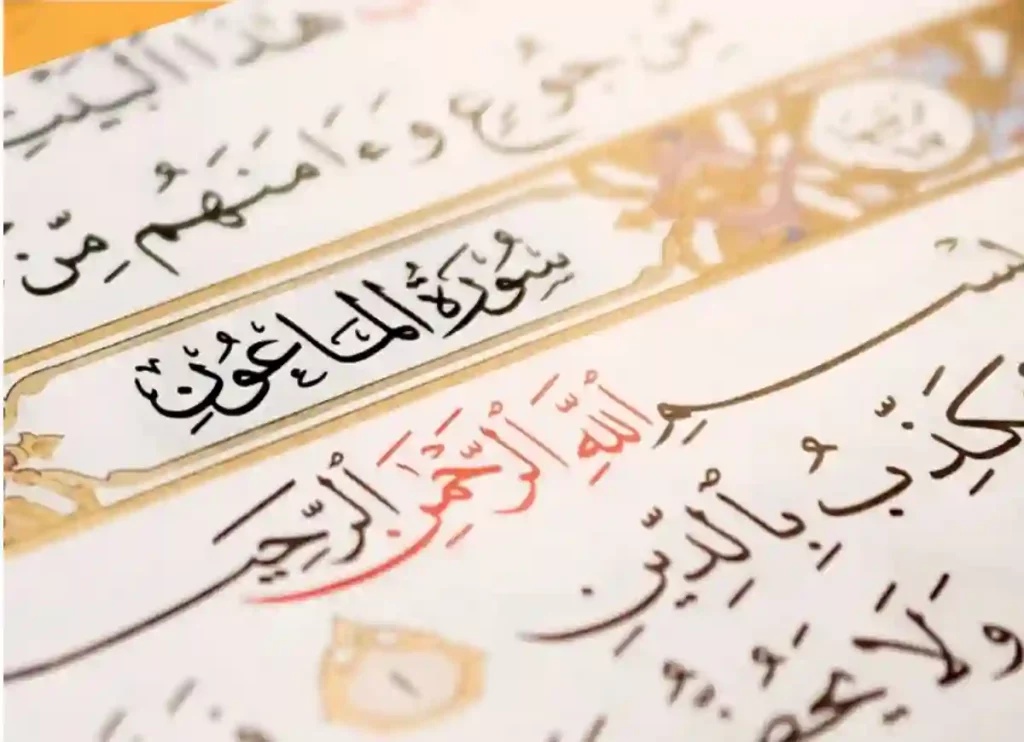 هَٰذَا ٱلْبَيْتِ
مِّن جُوعٍ وَءَامَنَهُم مِّنْ
سُورَةُ المَاعُونِ
بِسْمِ ٱللَّهِ ٱلرَّحْمَٰنِ ٱلرَّحِيمِ
يُكَذِّبُ بِٱلدِّينِ ١
وَلَا يَحُضُّ